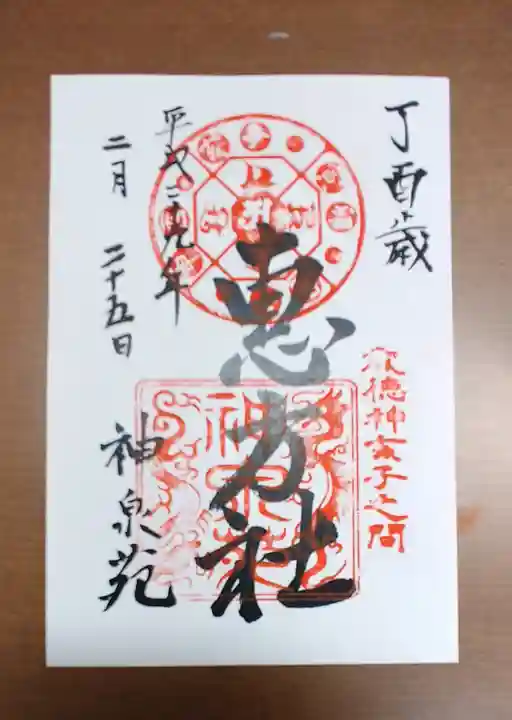 丁酉歳
歳徳神亥子之間
恵方社
神泉苑
平成二十九年
二月 二十五日
神泉苑